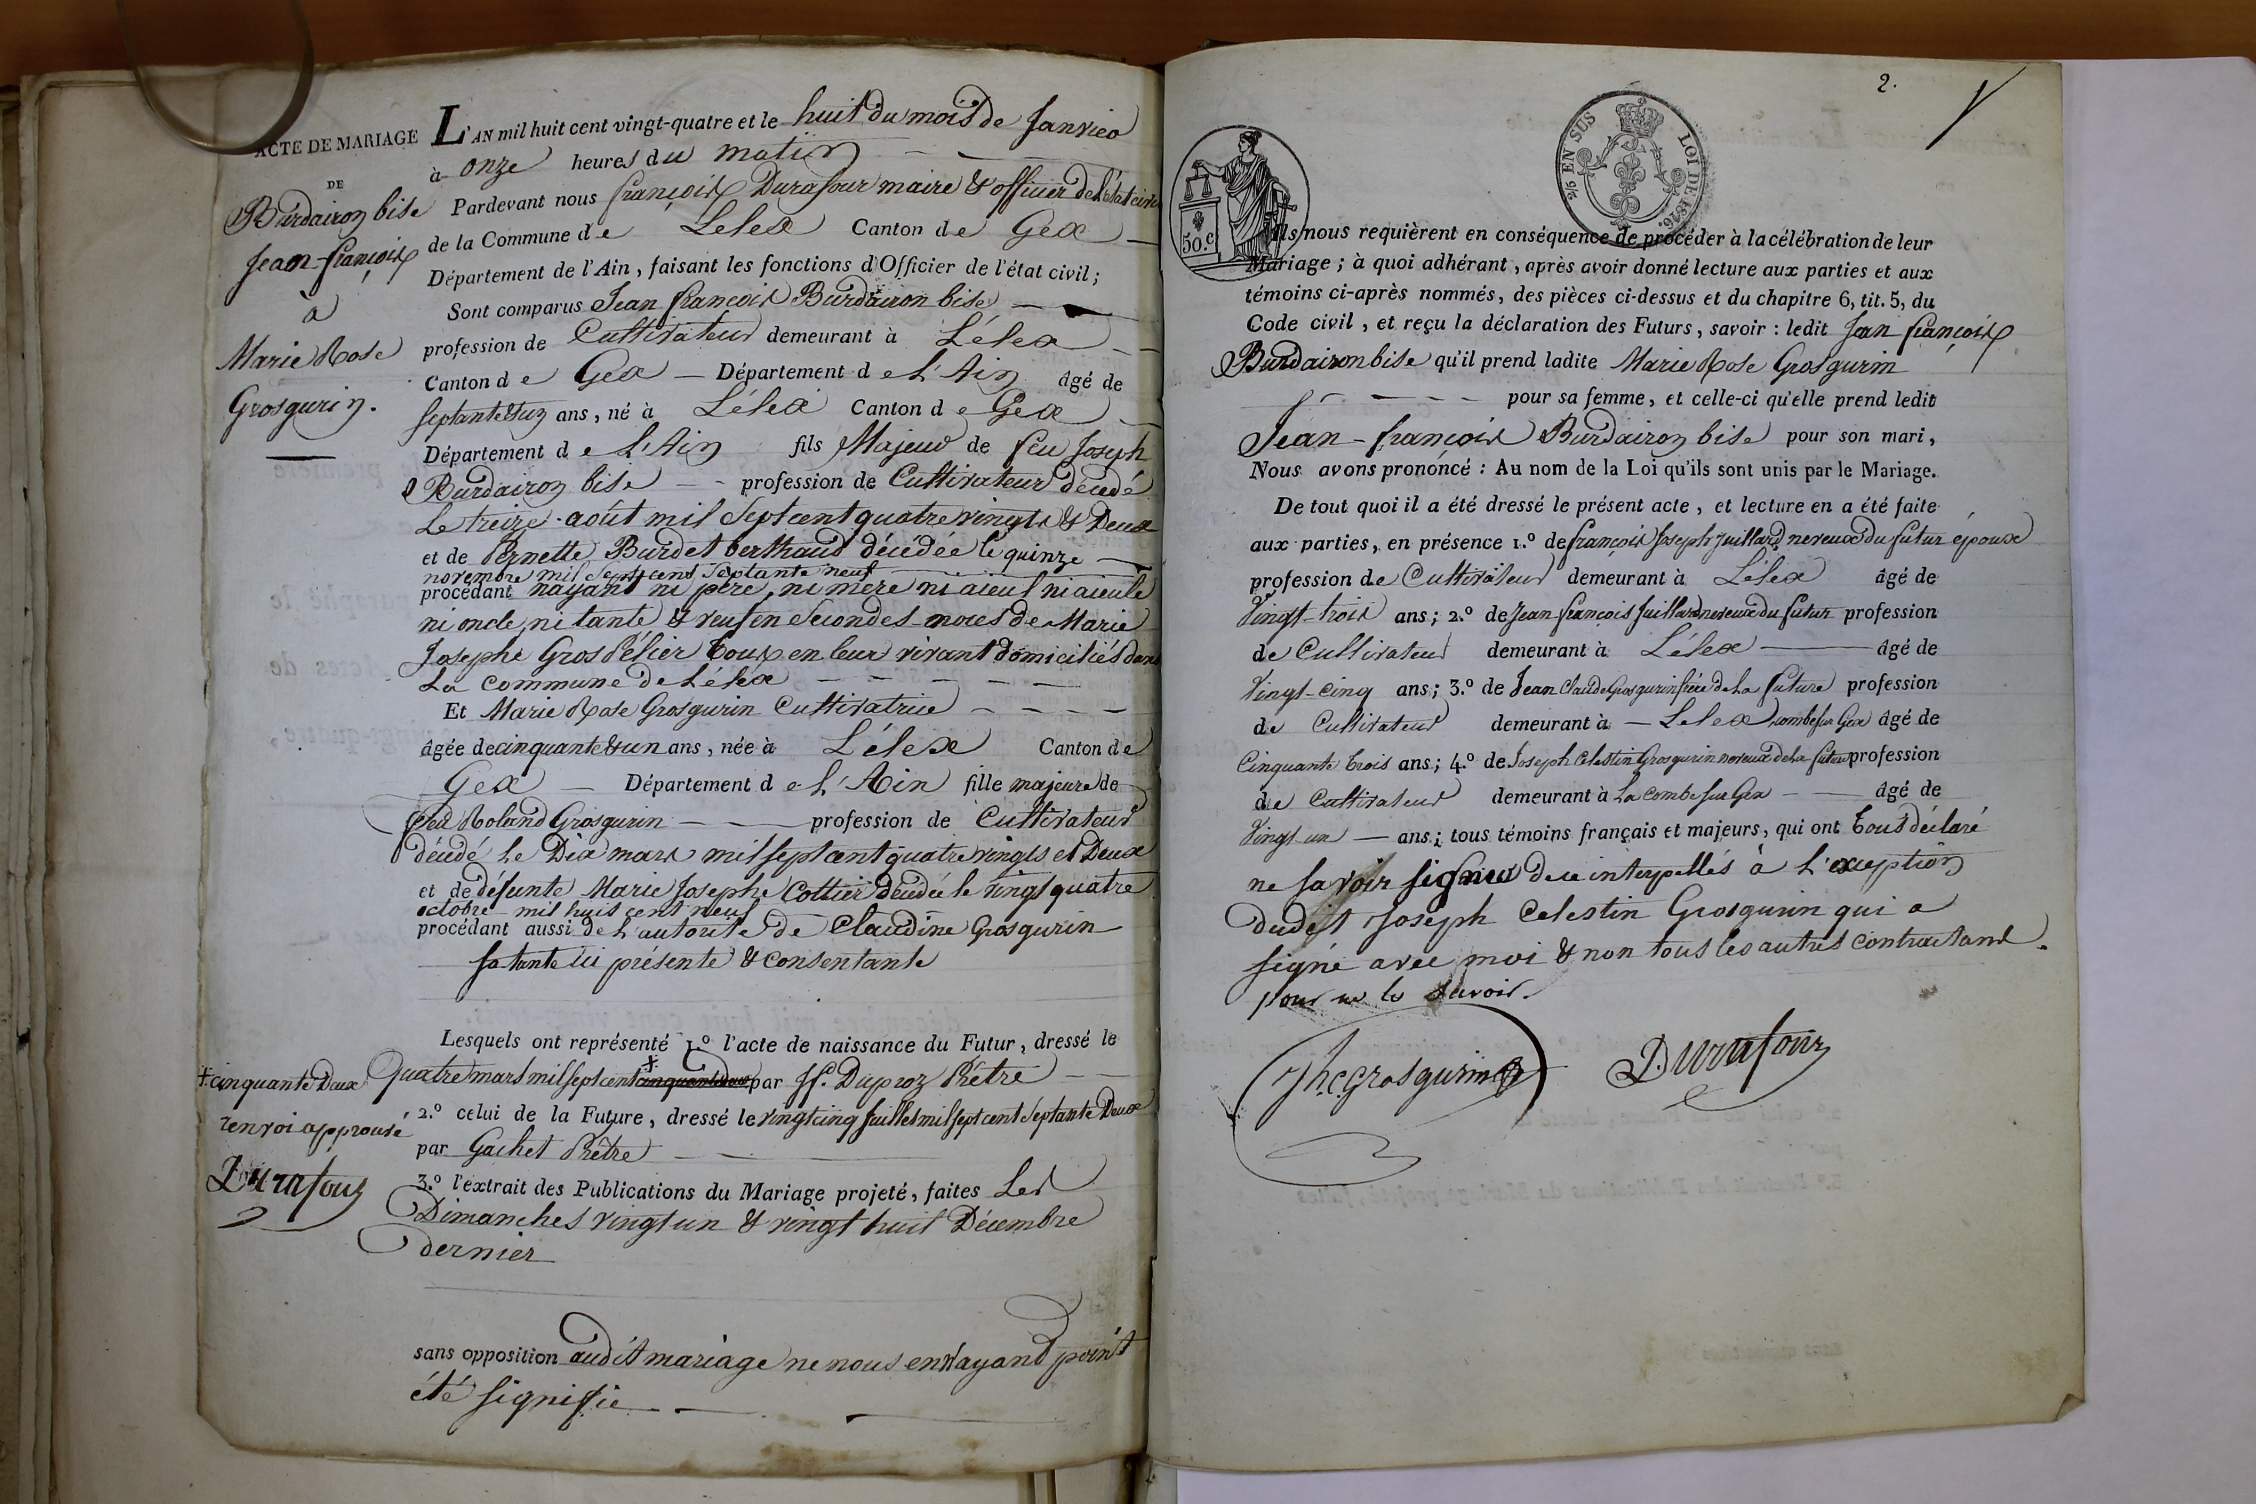 ACTE DE MARIAGE
DE
Burdairon bise
Jean-françois
à
Marie Rose
Grosgurin.
L'AN mil huit cent vingt-quatre et le huit du mois de Janvier
à onze heures du matin
Pardevant nous françois Durafour maire & officier de l'état civil
de la Commune de Lélex Canton de Gex
Département de l'Ain, faisant les fonctions d'Officier de l'état civil;
Sont comparus Jean françois Burdairon bise
profession de Cultivateur demeurant à Lélex
Canton de Gex — Département de L'Ain âgé de
septante&un ans, né à Lélex Canton de Gex
Département de L'Ain fils Majeur de feu Joseph
Burdairon bise - - profession de Cultivateur décédé
Le treize août mil Sept cent quatre vingts & Deux
et de Pernette Burdet berthaud décédée le quinze
novembre mil sept cent septante neuf
procédant n'ayant ni père, ni mère ni aieul ni aieule
ni oncle, ni tante & veuf en Secondes noces de Marie
Josephe Gros Pélier tous en leur vivant domiciliés dans
La commune de Lélex
Et Marie Rose Grosgurin Cultivatrice
âgée de cinquante&un ans, née à Lélex Canton de
Gex — Département de L'Ain fille majeure de
feu Roland Grosgurin — profession de Cultivateur
décédé Le Dix mars mil sept cent quatre vingts et Deux
et de défunte Marie Josephe Cottier décédée le vingt quatre
octobre mil huit cent neuf
procédant aussi de L'autorité de Claudine Grosgurin
sa tante ici présente & consentante
Lesquels ont représenté 1.º l'acte de naissance du Futur, dressé le
Quatre mars mil sept cent cinquante par Jf. Duproz Prêtre
+ cinquante Deux
renvoi approuvé
Durafour
2.º celui de la Future, dressé le vingt cinq Juillet mil sept cent Septante Deux
par Gachet Prêtre
3.º l'extrait des Publications du Mariage projeté, faites Les
Dimanches vingt un & vingt huit Décembre
dernier
sans opposition audit mariage ne nous en n'ayant point
été signifié
2.
2/6 EN SUS LOI DE 1816.
50.c
Ils nous requièrent en conséquence de procéder à la célébration de leur
Mariage; à quoi adhérant, après avoir donné lecture aux parties et aux
témoins ci-après nommés, des pièces ci-dessus et du chapitre 6, tit. 5, du
Code civil, et reçu la déclaration des Futurs, savoir: ledit Jean françois
Burdairon bise qu'il prend ladite Marie Rose Grosgurin
pour sa femme, et celle-ci qu'elle prend ledit
Jean-françois Burdairon bise pour son mari,
Nous avons prononcé: Au nom de la Loi qu'ils sont unis par le Mariage.
De tout quoi il a été dressé le présent acte, et lecture en a été faite
aux parties, en présence 1.º de françois Joseph Juillard neveux du futur époux
profession de Cultivateur demeurant à Lélex âgé de
Vingt-trois ans; 2.º de Jean françois Juillard neveux du futur profession
de Cultivateur demeurant à Lélex — âgé de
Vingt-cinq ans; 3.º de Jean Claude Grosgurin frère de La future profession
de Cultivateur demeurant à — Lelex combe sur Gex âgé de
Cinquante trois ans; 4.º de Joseph Celestin Grosgurin neveux de La future profession
de Cultivateur demeurant à La Combe sur Gex — âgé de
Vingt un — ans; tous témoins français et majeurs, qui ont tous déclaré
ne savoir signer de ce interpellés à L'exception
dudit Joseph Celestin Grosgurin qui a
signé avec moi & non tous les autres contractant
pour ne le savoir.
Jh.C.Grosgurin
Durafour